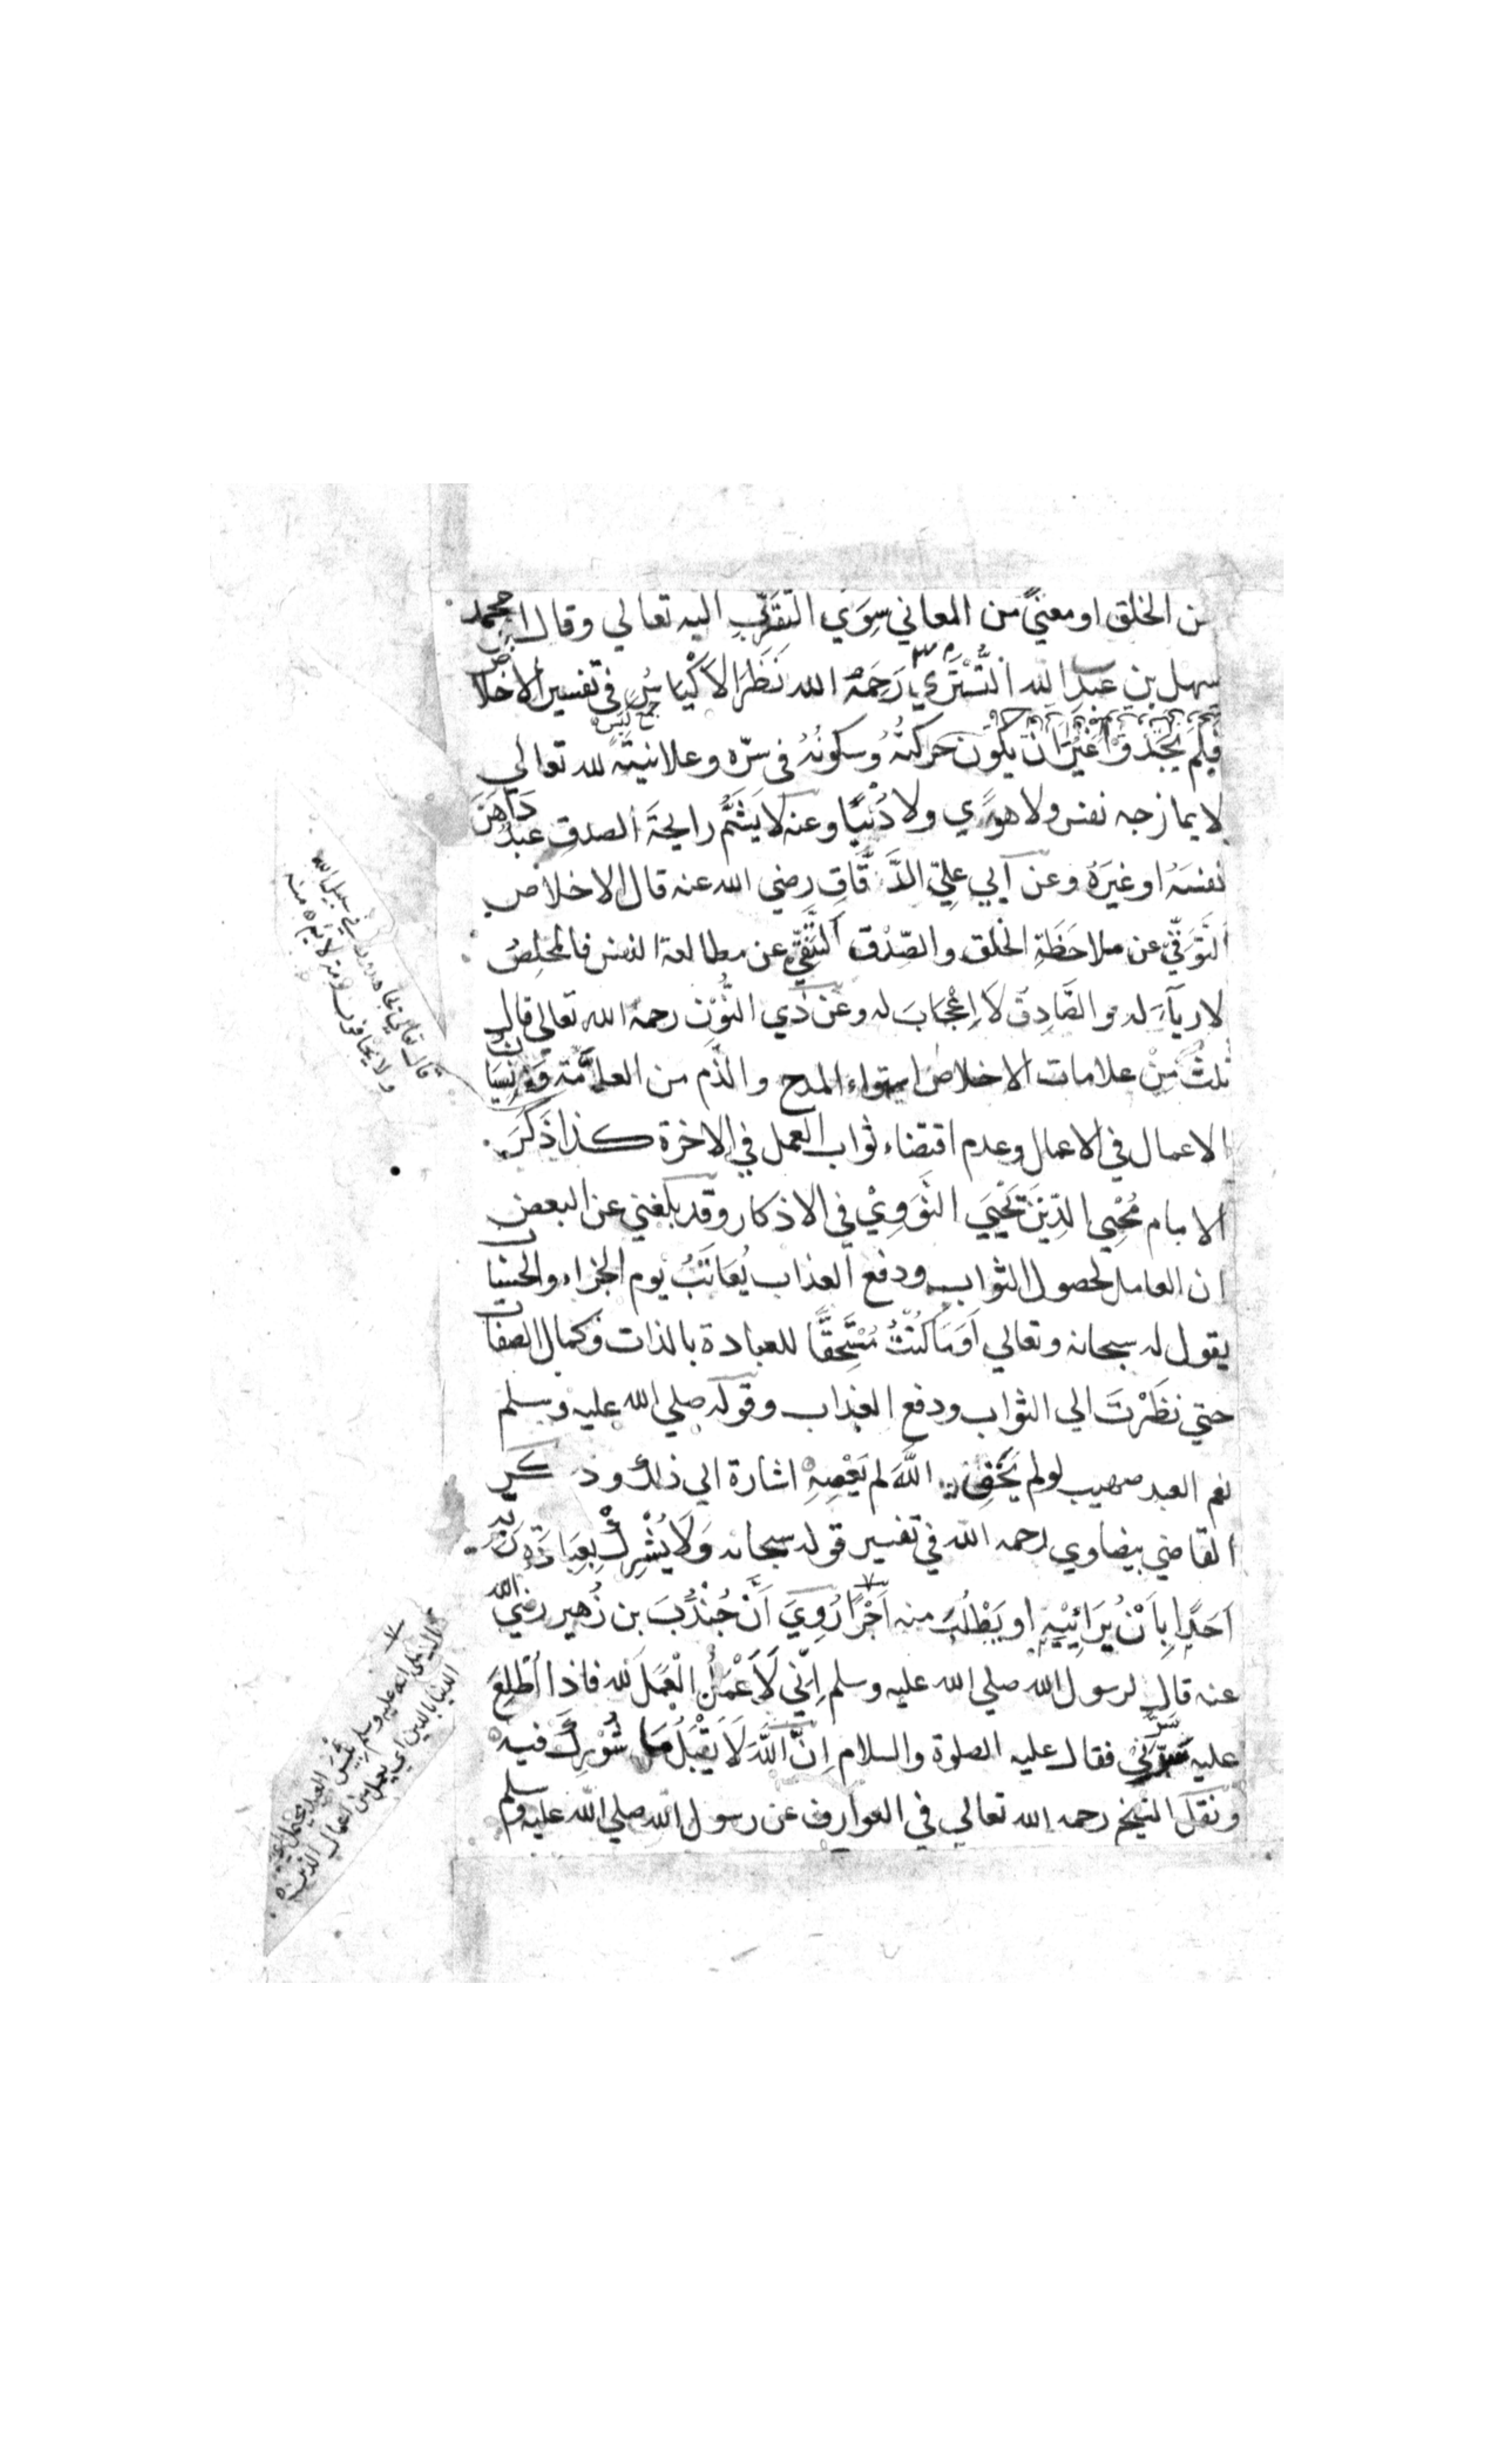 من الخلق او معنيً من المعاني سِوَي التَقَرُّبِ اليه تعالي وقال ابو محمد
سهل بن عبد الله التُّسْتَرِيُّ رَحِمَهُ الله نَظَرَ الاَكْيَاسُ في تفسير الاخلاص
جمع كَيِّس
فَلَمْ يَجِدُوْا غَيْرَ اَنْ يَكُوْنَ حَركَتُهُ وُسكونُهُ في سرّه وعلانيته لله تعالي
لا يمازجه نفس ولا هوًي ولا دُنْيًا وعنه لا يَشَمُّ رايحةَ الصدقِ عَبْدٌ دَاهَنَ
نفسَهُ او غيرَهُ وعن اَبي عليّ الدَّقَّاقِ رضي الله عنه قال الاخلاص
اَلتَوَقّيْ عن ملاحَظَةِ الخلق والصّدْق اَلتَّنَقّيْ عن مطالعة النفس فالمخلِصُ
لا ريآءَ له والصَّادِقُ لَا اِعْجَابَ له وعَنْ ذي النُّوْن رحمه الله تعالي قال
ثلثٌ مِّنْ علامات الاخلاص استواء المدح والذّم من العامَّة ونِسْيَان
الاعمال في الاعمال وعدم اقتضاء ثواب العمل في الاخرة كذا ذَكَرَ
الامام مُحْيِي الدِّيْن يَحْيَي النَّوَوِيْ في الاذكار وقد بَلَغني عن البعض
ان العامل لحصول الثواب ودفع العذاب يُعَاتَبُ يوم الجزاء والحساب
يقول له سبحانه وتعالي اَوَمَا كُنْتُ مُسْتَحِقًّا للعبادة بالذات وكمال الصفات
حتي نظَرْتَ الي الثواب ودفع العذاب وقوله صلي الله عليه وسلم
نعم العبد صهيب لو لم يَخَفِ اللّٰهَ لم يَعْصِهِ اشارة الي ذلك وذكر
القاضي بيضاوي رحمه الله في تفسير قوله سبحانه وَلَا يُشْرِكْ بِعِبَادَةِ رَبِّهِ
اَحَدًا بِاَنْ يُرَائِيْهِ او يَطْلُبَ منه اَجْرًا رُوِيَ اَنَّ جُنْدُبَ بن زُهير رضي الله
عنه قال لرسول الله صلي الله عليه وسلم اِنّي لَاَعْمَلُ الْعَمَلَ لله فاذا اُطُّلِعَ
عليه سَرَّنِيْ فقال عليه الصلوة والسلام اِنَّ اللّٰهَ لَا يَقْبَلُ مَا شُوْرِكَ فيه
ونَقَلَ الشيخ رحمه الله تعالي في العوارف عن رسول الله صلي الله عليه وسلم
قال تعالي يجاهدون في سبيل الله
ولا يخافون لومة لائم منه
صلي الله عليه وسلم بئس العبد
الدنيا بالدين اي يعمل من اعمال الدين